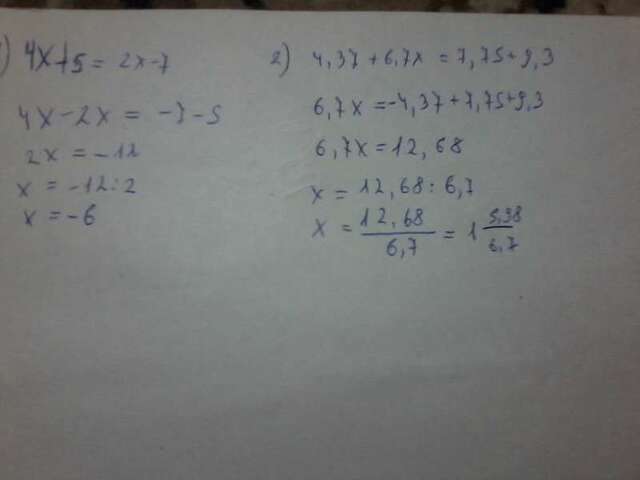 ) 4x+5 = 2x-7
4x-2x = -7-5
2x = -12
x = -12:2
x = -6
2) 4,37+6,7x = 7,75+9,3
6,7x = -4,37+7,75+9,3
6,7x = 12,68
x = 12,68:6,7
x = 12,68/6,7 = 1 5,98/6,7